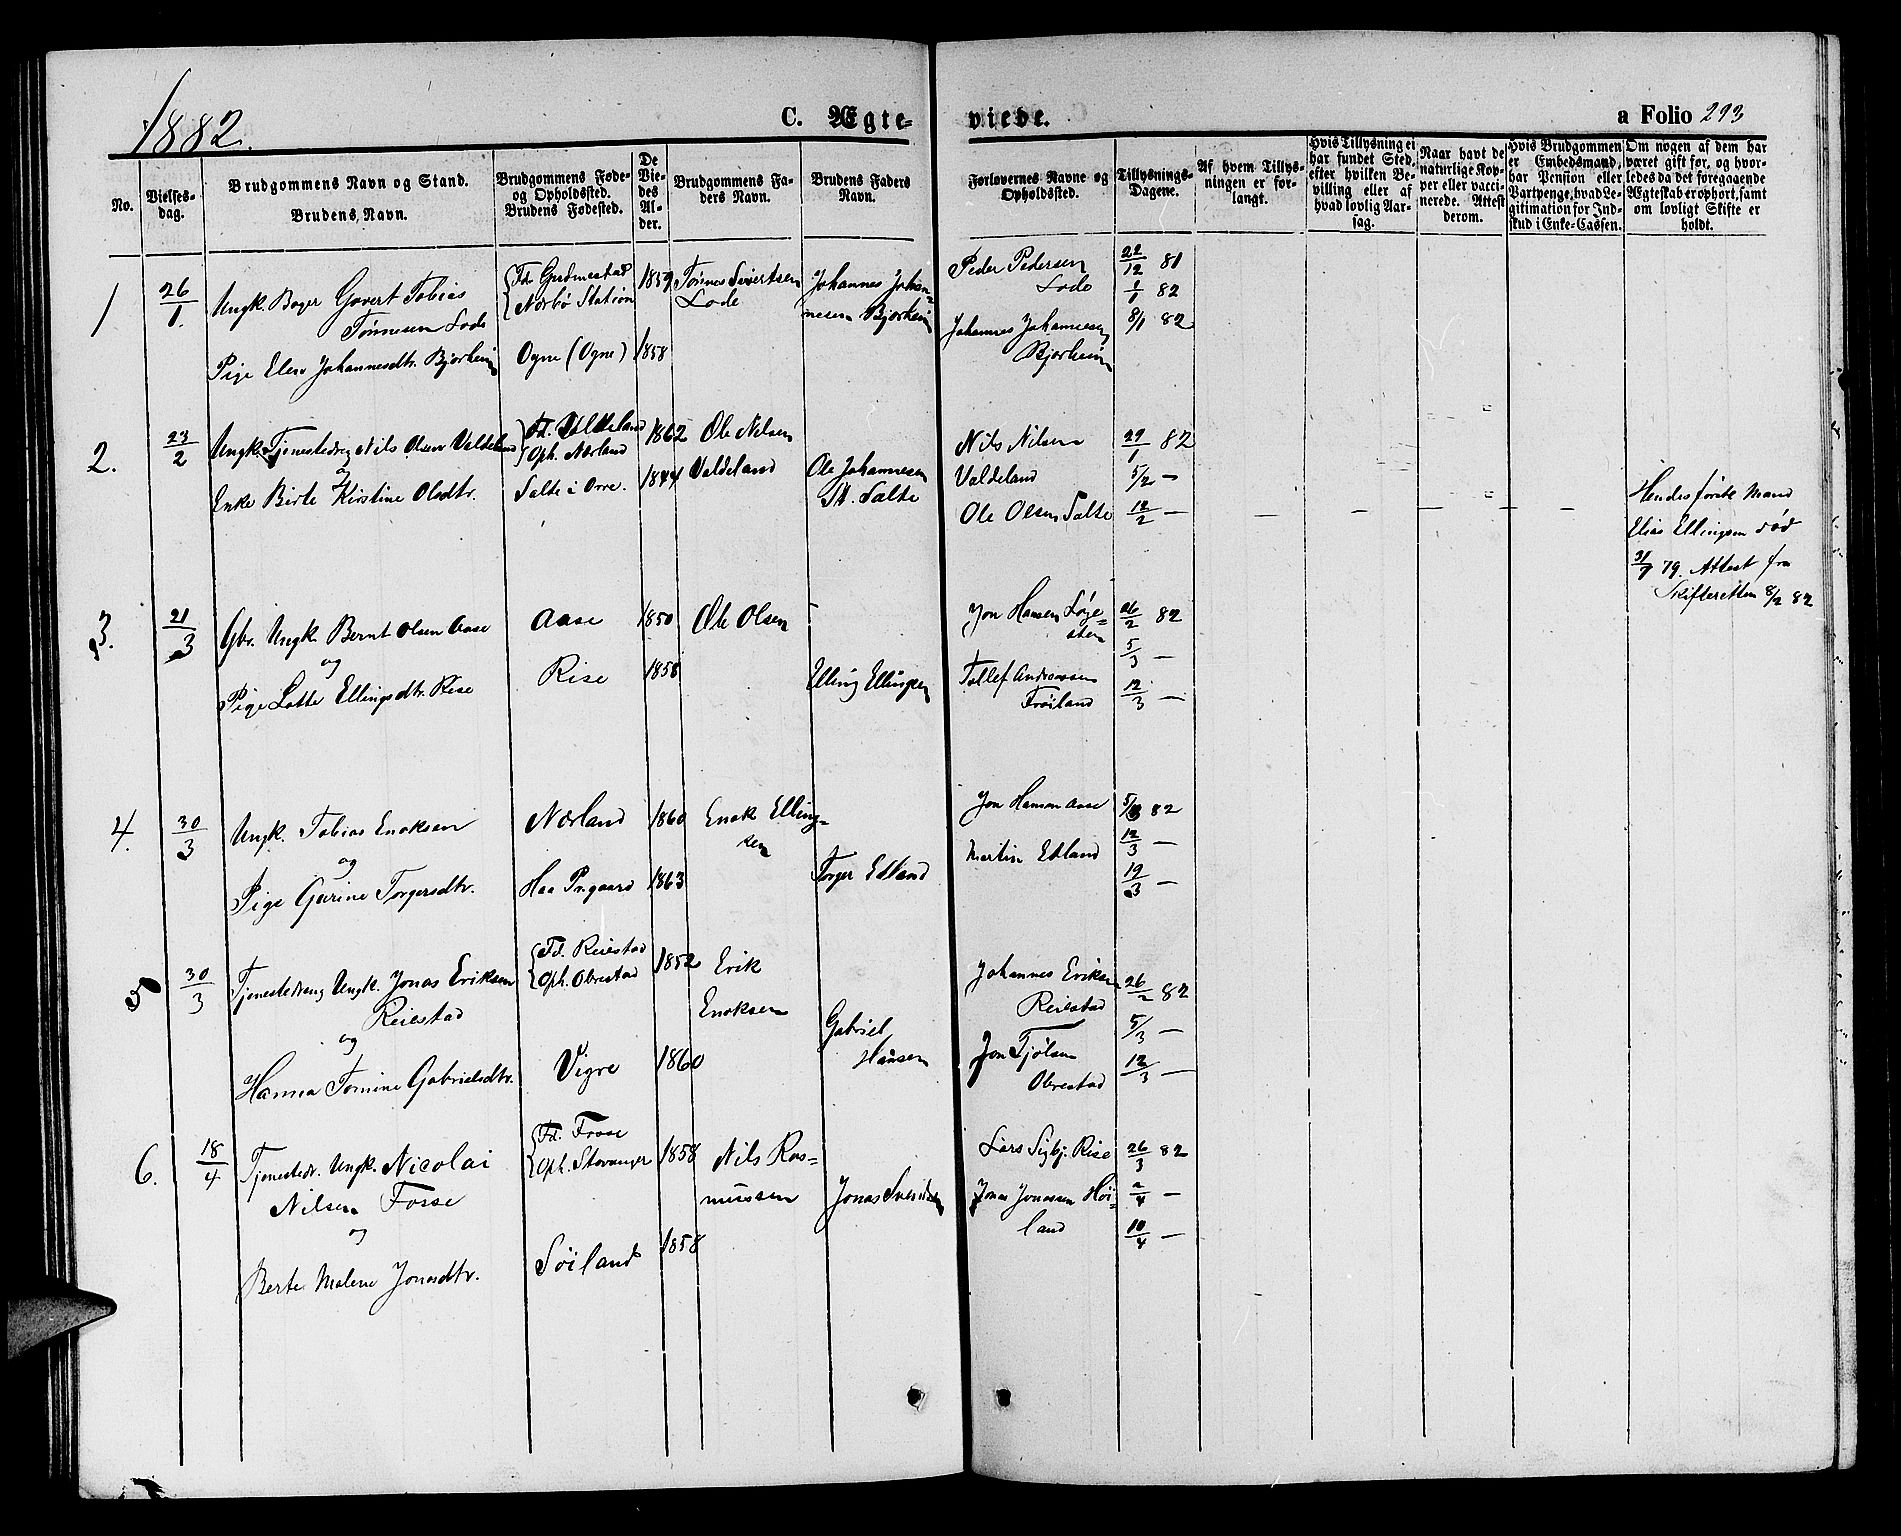 1882.
C. Ægte-
viede.
a Folio 293
No.
Vielses-
dag.
Brudgommens Navn og Stand.
Brudens Navn.
Brudgommens Føde-
og Opholdssted.
Brudens Fødested.
De
Vie-
des
Al-
der.
Brudgommens Fa-
ders Navn.
Brudens Faders
Navn.
Forlovernes Navne og
Opholdssted.
Tillysnings-
Dagene.
Af hvem Tillys-
ningen er for-
langt.
Hvis Tillysning ei
har fundet Sted,
efter hvilken Be-
villing eller af
hvad lovlig Aar-
sag.
Naar havt de
naturlige Kop-
per eller vacci-
nerede. Attest
derom.
Hvis Brudgommen
er Embedsmand,
har Pension eller
Vartpenge, hvad Le-
gitimation for Ind-
skud i Enke-Cassen.
Om nogen af dem har
været gift før, og hvor-
ledes da det foregaaende
Ægteskab er ophørt, samt
om lovligt Skifte er
holdt.
1
26/1.
Ungk. Bager Govert Tobias
Tønnesen Lode
Pige Elen Johannesdtr. Bjorheim
Nærbø Station
Ogne (Ogne)
1859
1858
Tønnes Sivertsen
Lode
Johannes Johan-
nesen Bjorheim
Peder Pedersen
Lode
Johannes Johannesen
Bjorheim
22/12 81
1/1 82
8/1 82
2.
23/2
Ungk. Tjenestedreng Nils Olsen Valdeland
og
Enke Birte Kirstine Olsdtr.
Fd. Valdeland
Oph. Nærland
Salte i Orre.
1862
1844
Ole Nilsen
Valdeland
Ole Johannesen
St. Salte
Nils Nilsen
Valdeland
Ole Olsen Salte
29/1 82
5/2 —
12/2 —
Hendes forrige Mand
Elias Ellingsen død
31/7 79. Attest fra
Skifteretten 8/2 82
3.
21/3
Gbr. Ungk. Bernt Olsen Aase
og
Pige Lotte Ellingsdtr. Rise
Aase
Rise
1850
1858
Ole Olsen
Elling Ellingsen
Jon Hansen Løge-
sten
Tollef Andreassen
Frøiland
26/2 82
5/3 —
12/3 —
4.
30/3
Ungk. Tobias Enoksen
og
Pige Gurine Torgersdtr.
Nærland
Haa Prgaard
1860
1863
Enok Elling-
sen
Torger Edland
Jon Hanson Aase
Martin Edland
5/3 82
12/3 —
19/3 —
5
30/3
Tjenestedreng Ungk. Jonas Eriksen
Reiestad
og
Hanna Tomine Gabrielsdtr.
Fd. Reiestad
Oph. Obrestad
Vigre
1852
1860
Erik
Enoksen
Gabriel
Hansen
Johannes Eriksen
Reiestad
Jon Tjølsen
Obrestad
26/2 82
5/3 —
12/3 —
6.
18/4
Tjenestedr. Ungk. Nicolai
Nilsen Fosse
og
Berte Malene Jonasdtr.
Fd. Fosse
Oph. Stavanger
Søiland
1858
1858
Nils Ras-
mussen
Jonas Svendsen
Lars Sigbj. Rise
Jonas Jonassen Høi-
land
26/3 82
2/4 —
10/4 —